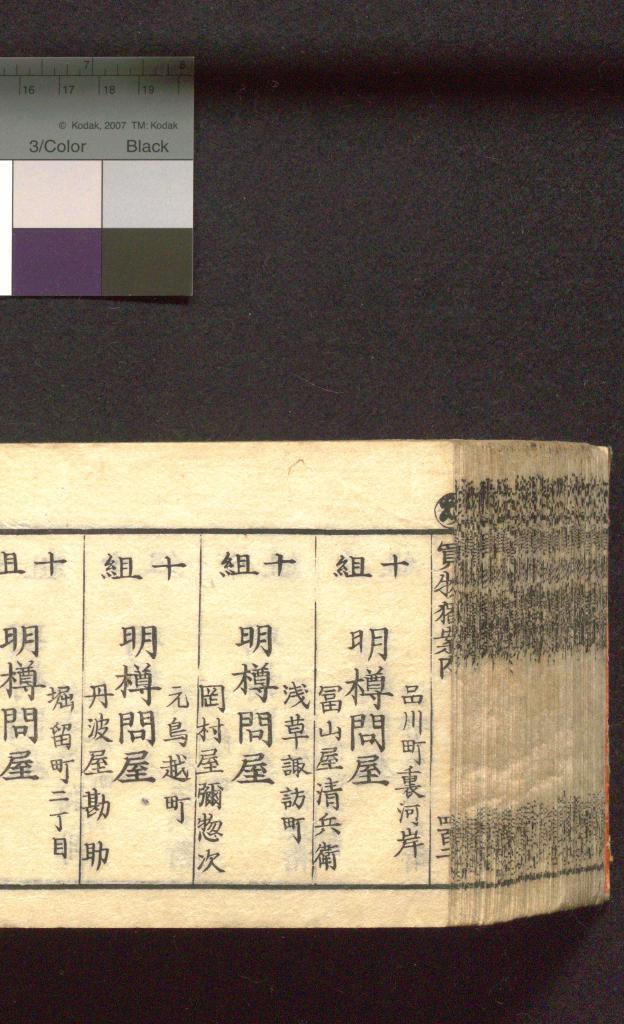 7 8
16 17 18 19
© Kodak, 2007 TM: Kodak
3/Color Black
買物獨案内
四百二
十組
品川町裏河岸
明樽問屋
冨山屋清兵衛
十組
浅草諏訪町
明樽問屋
岡村屋彌惣次
十組
元鳥越町
明樽問屋
丹波屋勘助
十組
堀留町二丁目
明樽問屋